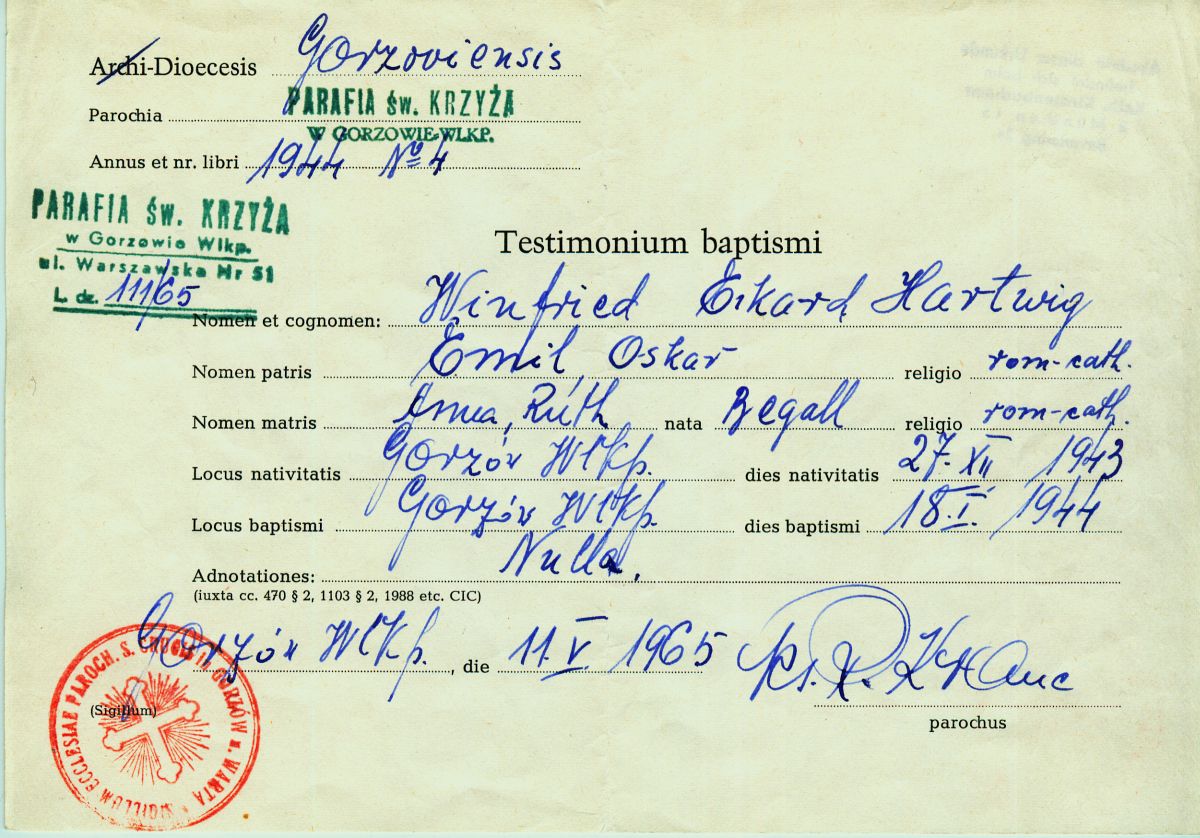 Archi-Dioecesis Gorzoviensis
Parochia PARAFIA św. KRZYŻA
W GORZOWIE-WLKP.
Annus et nr. libri 1944 No 4
PARAFIA św. KRZYŻA
w Gorzowie Wlkp.
ul. Warszawska Nr 51
L. dz. 11/65
Testimonium baptismi
Nomen et cognomen: Winfried Ekard Hartwig
Nomen patris Emil, Oskar religio rom-cath.
Nomen matris Anna, Rúth nata Begall religio rom-cath.
Locus nativitatis Gorzów Wlkp. dies nativitatis 27. XII 1943
Locus baptismi Gorzów Wlkp. dies baptismi 18. I. 1944
Adnotationes: Nulla.
(iuxta cc. 470 § 2, 1103 § 2, 1988 etc. CIC)
Gorzów Wlkp., die 11. V 1965 ks.
(Sigillum)
parochus
SIGILLUM ECCLESIAE PAROCH. S. CRUCIS IN GORZÓW n. WARTĄ